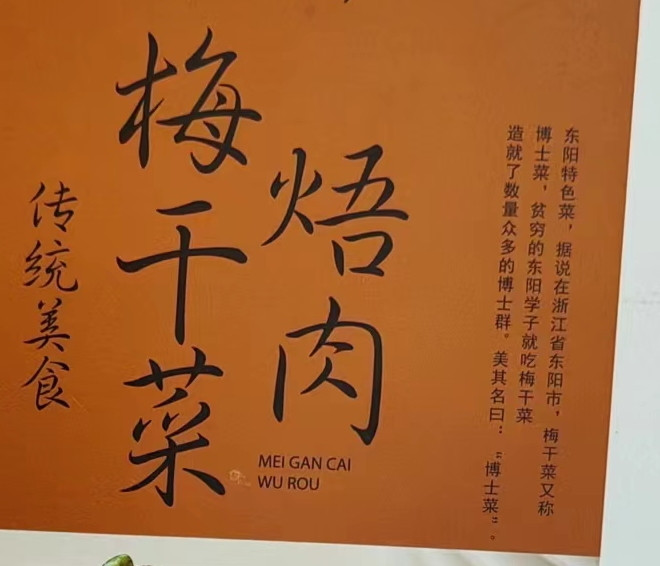 梅干菜
焐肉
MEI GAN CAI
WU ROU
传统美食
东阳特色菜，据说在浙江省东阳市，梅干菜又称
博士菜，贫穷的东阳学子就吃梅干菜
造就了数量众多的博士群。美其名曰：“博士菜”。